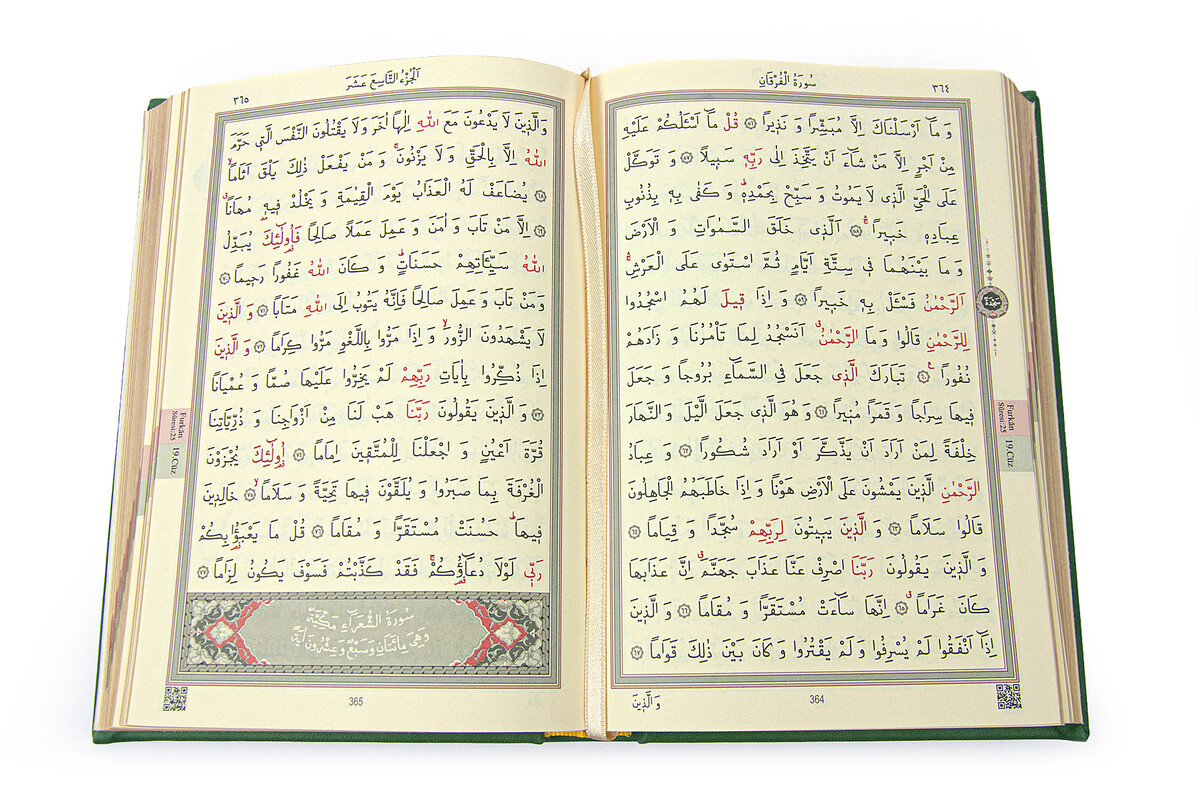 سُورَةُ الْفُرْقَانِ
٣٦٤
وَمَٓا اَرْسَلْنَاكَ اِلَّا مُبَشِّرًا وَنَذٖيرًا ﴿٥٦﴾ قُلْ مَٓا اَسْـَٔلُكُمْ عَلَيْهِ
مِنْ اَجْرٍ اِلَّا مَنْ شَٓاءَ اَنْ يَتَّخِذَ اِلٰى رَبِّهٖ سَبٖيلًا ﴿٥٧﴾ وَتَوَكَّلْ
عَلَى الْحَيِّ الَّذٖى لَا يَمُوتُ وَسَبِّحْ بِحَمْدِهٖؕ وَكَفٰى بِهٖ بِذُنُوبِ
عِبَادِهٖ خَبٖيرًاۚۛ ﴿٥٨﴾ اَلَّذٖى خَلَقَ السَّمٰوَاتِ وَالْاَرْضَ
وَمَا بَيْنَهُمَا فٖى سِتَّةِ اَيَّامٍ ثُمَّ اسْتَوٰى عَلَى الْعَرْشِۚۛ
اَلرَّحْمٰنُ فَسْـَٔلْ بِهٖ خَبٖيرًا ﴿٥٩﴾ وَاِذَا قٖيلَ لَهُمُ اسْجُدُوا
لِلرَّحْمٰنِ قَالُوا وَمَا الرَّحْمٰنُࣗ اَنَسْجُدُ لِمَا تَأْمُرُنَا وَزَادَهُمْ
نُفُورًا ﴿٦٠﴾ تَبَارَكَ الَّذٖى جَعَلَ فِى السَّمَٓاءِ بُرُوجًا وَجَعَلَ
فٖيهَا سِرَاجًا وَقَمَرًا مُنٖيرًا ﴿٦١﴾ وَهُوَ الَّذٖى جَعَلَ الَّيْلَ وَالنَّهَارَ
خِلْفَةً لِمَنْ اَرَادَ اَنْ يَذَّكَّرَ اَوْ اَرَادَ شُكُورًا ﴿٦٢﴾ وَعِبَادُ
الرَّحْمٰنِ الَّذٖينَ يَمْشُونَ عَلَى الْاَرْضِ هَوْنًا وَاِذَا خَاطَبَهُمُ الْجَاهِلُونَ
قَالُوا سَلَامًا ﴿٦٣﴾ وَالَّذٖينَ يَبٖيتُونَ لِرَبِّهِمْ سُجَّدًا وَقِيَامًا ﴿٦٤﴾
وَالَّذٖينَ يَقُولُونَ رَبَّنَا اصْرِفْ عَنَّا عَذَابَ جَهَنَّمَࣗ اِنَّ عَذَابَهَا
كَانَ غَرَامًاࣗ ﴿٦٥﴾ اِنَّهَا سَٓاءَتْ مُسْتَقَرًّا وَمُقَامًا ﴿٦٦﴾ وَالَّذٖينَ
اِذَٓا اَنْفَقُوا لَمْ يُسْرِفُوا وَلَمْ يَقْتُرُوا وَكَانَ بَيْنَ ذٰلِكَ قَوَامًا ﴿٦٧﴾
وَالَّذٖينَ
364
سَجْدَة
Furkân
Sûresi:25
19.Cüz
اَلْجُزْءُ التَّاسِعَ عَشَرَ
٣٦٥
وَالَّذٖينَ لَا يَدْعُونَ مَعَ اللّٰهِ اِلٰهًا اٰخَرَ وَلَا يَقْتُلُونَ النَّفْسَ الَّتٖى حَرَّمَ
اللّٰهُ اِلَّا بِالْحَقِّ وَلَا يَزْنُونَۚ وَمَنْ يَفْعَلْ ذٰلِكَ يَلْقَ اَثَامًاۙ
﴿٦٨﴾ يُضَاعَفْ لَهُ الْعَذَابُ يَوْمَ الْقِيٰمَةِ وَيَخْلُدْ فٖيهٖ مُهَانًاࣗ
﴿٦٩﴾ اِلَّا مَنْ تَابَ وَاٰمَنَ وَعَمِلَ عَمَلًا صَالِحًا فَاُو۬لٰٓئِكَ يُبَدِّلُ
اللّٰهُ سَيِّـَٔاتِهِمْ حَسَنَاتٍؕ وَكَانَ اللّٰهُ غَفُورًا رَحٖيمًا ﴿٧٠﴾
وَمَنْ تَابَ وَعَمِلَ صَالِحًا فَاِنَّهُ يَتُوبُ اِلَى اللّٰهِ مَتَابًا ﴿٧١﴾ وَالَّذٖينَ
لَا يَشْهَدُونَ الزُّورَۙ وَاِذَا مَرُّوا بِاللَّغْوِ مَرُّوا كِرَامًا ﴿٧٢﴾ وَالَّذٖينَ
اِذَا ذُكِّرُوا بِاٰيَاتِ رَبِّهِمْ لَمْ يَخِرُّوا عَلَيْهَا صُمًّا وَعُمْيَانًا
﴿٧٣﴾ وَالَّذٖينَ يَقُولُونَ رَبَّنَا هَبْ لَنَا مِنْ اَزْوَاجِنَا وَذُرِّيَّاتِنَا
قُرَّةَ اَعْيُنٍ وَاجْعَلْنَا لِلْمُتَّقٖينَ اِمَامًا ﴿٧٤﴾ اُو۬لٰٓئِكَ يُجْزَوْنَ
الْغُرْفَةَ بِمَا صَبَرُوا وَيُلَقَّوْنَ فٖيهَا تَحِيَّةً وَسَلَامًاۙ ﴿٧٥﴾ خَالِدٖينَ
فٖيهَاؕ حَسُنَتْ مُسْتَقَرًّا وَمُقَامًا ﴿٧٦﴾ قُلْ مَا يَعْبَؤُ۬ا بِكُمْ
رَبّٖى لَوْلَا دُعَٓاؤُ۬كُمْۚ فَقَدْ كَذَّبْتُمْ فَسَوْفَ يَكُونُ لِزَامًا ﴿٧٧﴾
سُورَةُ الشُّعَرَاءِ مَكِّيَّةٌ
وَهِىَ مِائَتَانِ وَسَبْعٌ وَعِشْرُونَ اٰيَةً
365
Furkân
Sûresi:25
19.Cüz